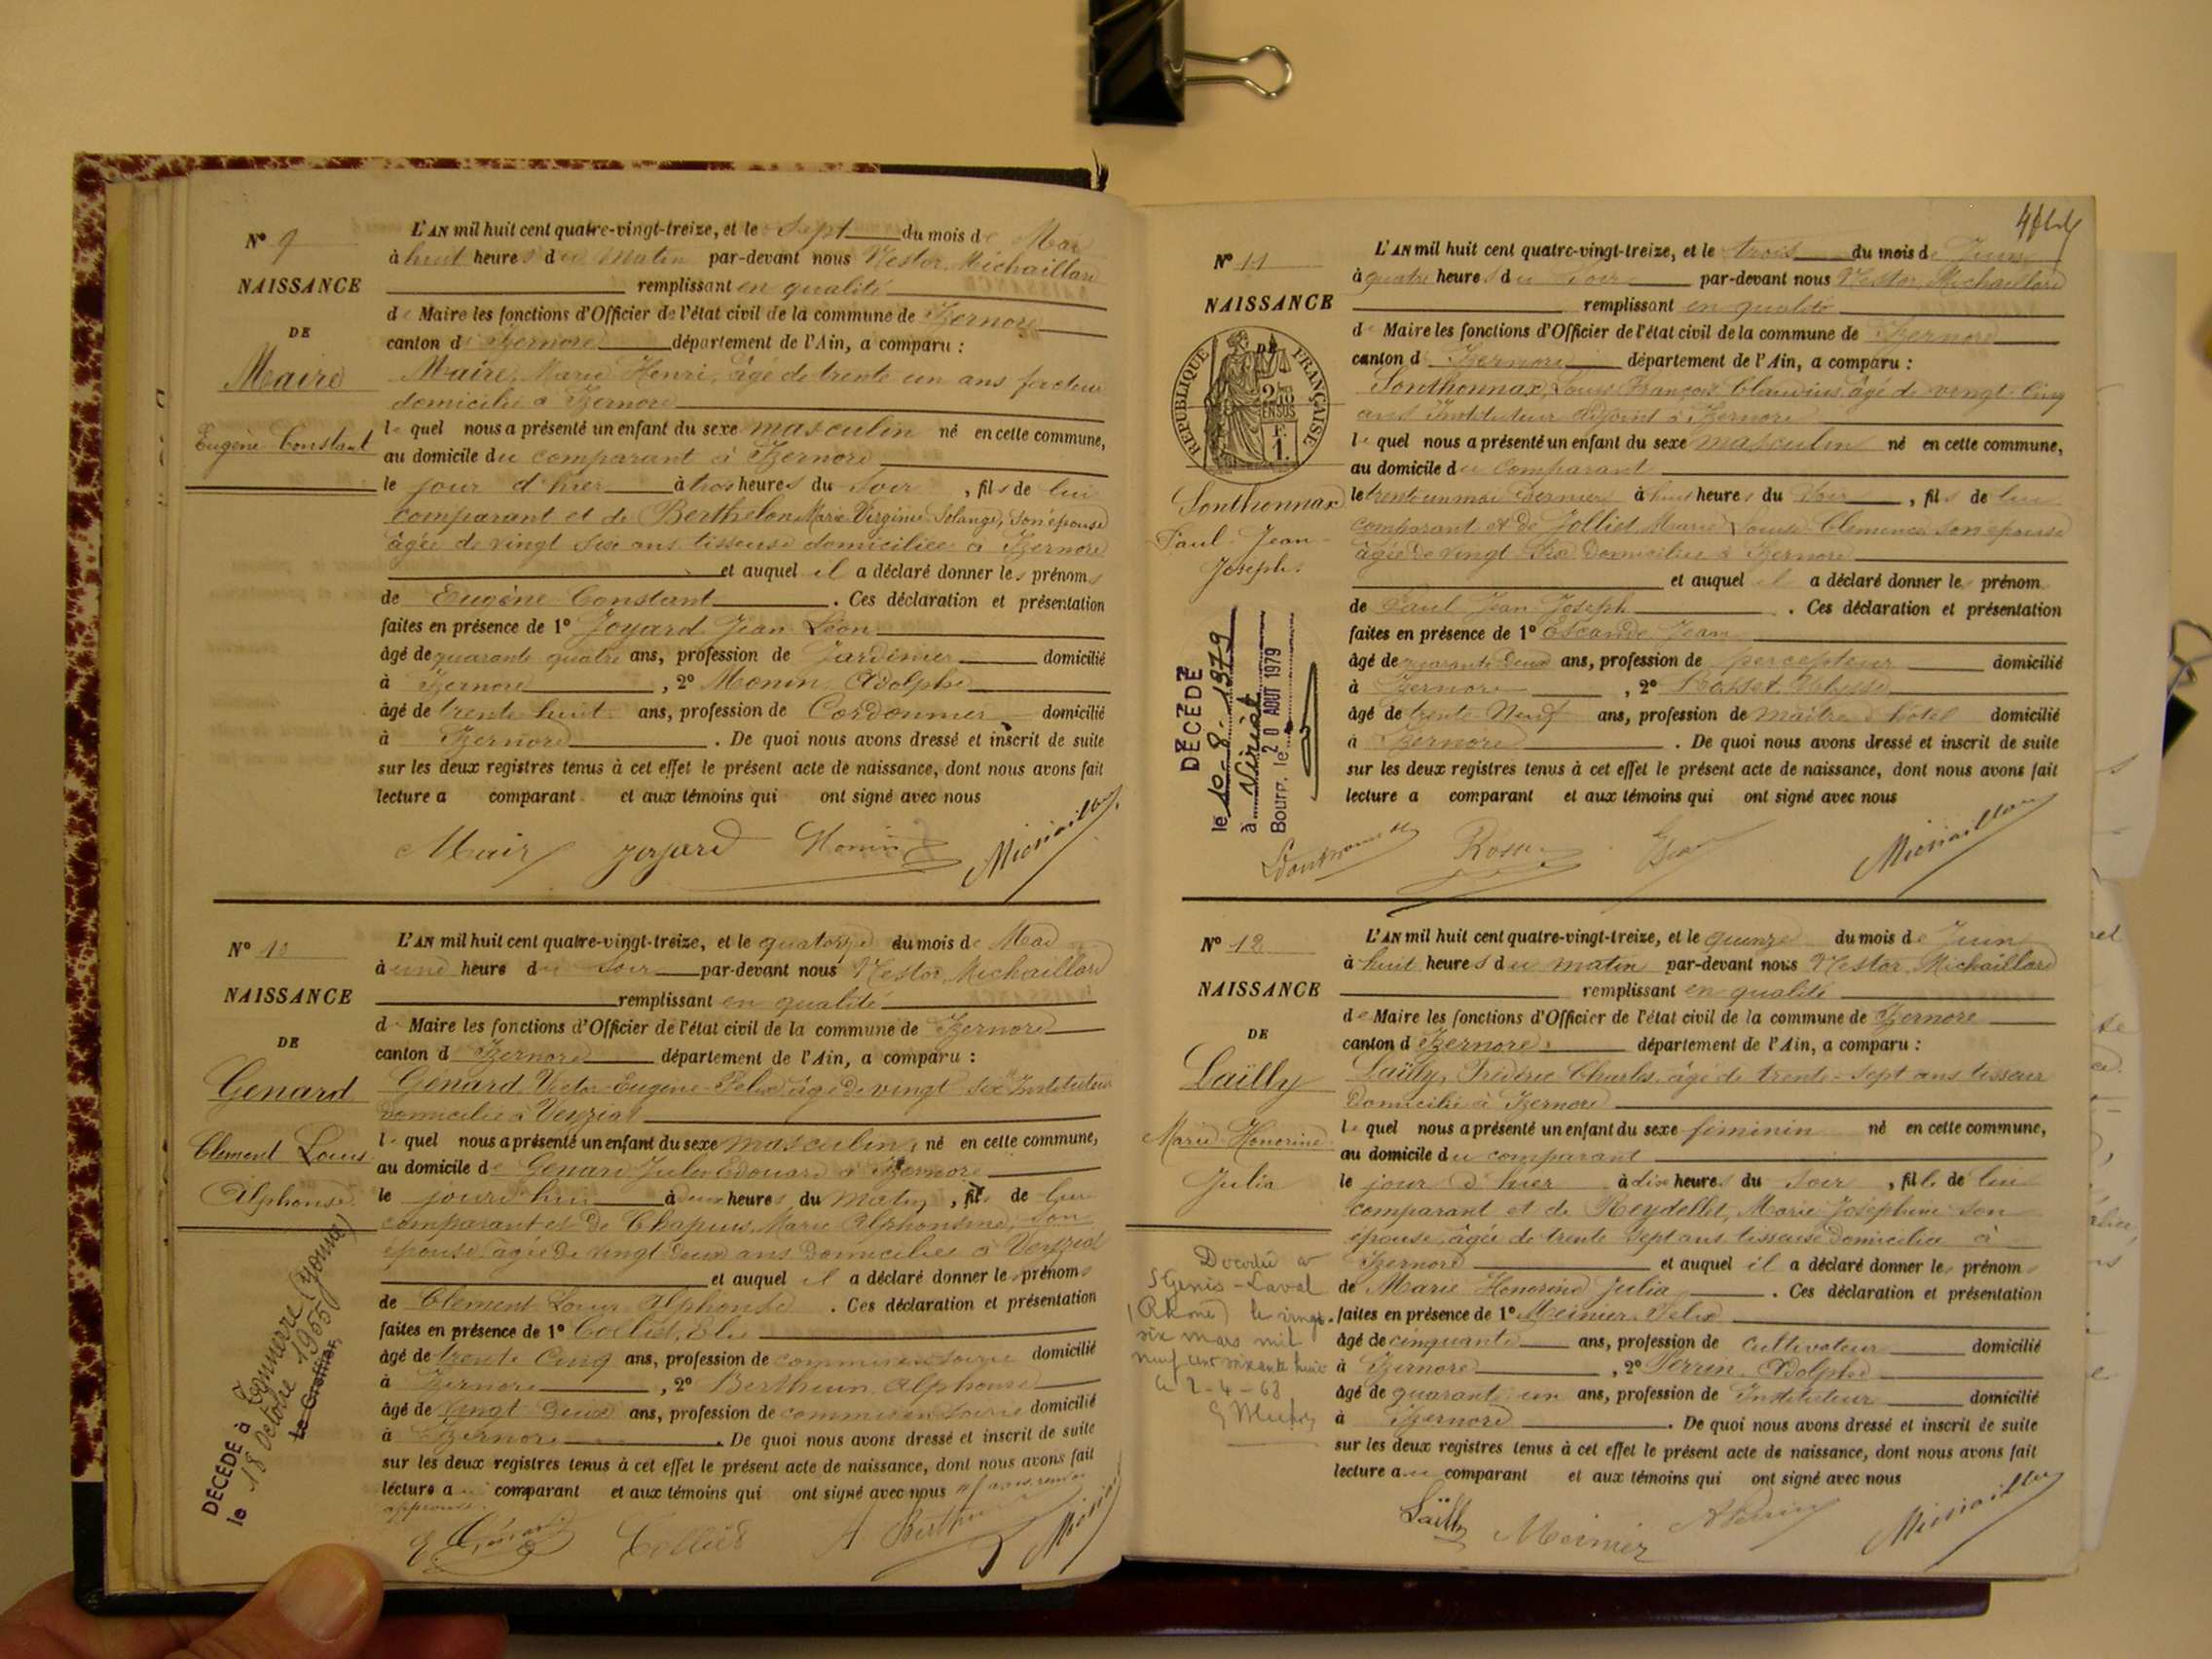 N° 9
NAISSANCE
DE
Maire
Eugène Constant
L'AN mil huit cent quatre-vingt-treize, et le Sept du mois de Mai
à huit heures du matin par-devant nous Nestor Michaillard
remplissant en qualité
de Maire les fonctions d'Officier de l'état civil de la commune de Izernore
canton d'Izernore département de l'Ain, a comparu :
Maire, Marie Henri, âgé de trente un ans facteur
domicilié à Izernore
lequel nous a présenté un enfant du sexe masculin né en cette commune,
au domicile du comparant à Izernore
le jour d'hier à trois heures du soir, fils de lui
comparant et de Berthelon Marie Virginie Solange, son épouse
âgée de vingt six ans tisseuse domiciliée à Izernore
et auquel il a déclaré donner les prénoms
de Eugène Constant. Ces déclaration et présentation
faites en présence de 1° Joyard Jean Léon
âgé de quarante quatre ans, profession de Jardinier domicilié
à Izernore, 2° Monin Adolphe
âgé de trente huit ans, profession de Cordonnier domicilié
à Izernore. De quoi nous avons dressé et inscrit de suite
sur les deux registres tenus à cet effet le présent acte de naissance, dont nous avons fait
lecture a comparant et aux témoins qui ont signé avec nous
Maire Joyard Monin Michaillard
N° 10
NAISSANCE
DE
Genard
Clement Louis
Alphonse
DÉCÉDÉ à Tonnerre (Yonne)
le 18 Octobre 1955
Le Greffier,
L'AN mil huit cent quatre-vingt-treize, et le quatorze du mois de Mai
à une heure du soir par-devant nous Nestor Michaillard
remplissant en qualité
de Maire les fonctions d'Officier de l'état civil de la commune de Izernore
canton d Izernore département de l'Ain, a comparu :
Génard Victor-Eugène-Félix âgé de vingt six Instituteur
Domicilié à Veyziat
lequel nous a présenté un enfant du sexe masculin, né en cette commune,
au domicile de Génard Jules Edouard à Izernore
le jourd'hui à deux heures du matin, fils de lui
comparant et de Chapuis Marie Alphonsine, son
épouse âgée de vingt deux ans Domiciliée à Veyziat
et auquel il a déclaré donner les prénoms
de Clément Louis Alphonse. Ces déclaration et présentation
faites en présence de 1° Colliet,
âgé de trente cinq ans, profession de commis en soierie domicilié
à Izernore, 2° Alphonse
âgé de vingt deux ans, profession de commis en soierie domicilié
à Izernore. De quoi nous avons dressé et inscrit de suite
sur les deux registres tenus à cet effet le présent acte de naissance, dont nous avons fait
lecture au comparant et aux témoins qui ont signé avec nous
Colliet
N° 11
NAISSANCE
DE
RÉPUBLIQUE FRANÇAISE
Sonthonnax
Paul Jean
Joseph
DÉCÉDÉ
le 10-8-1979
à Viriat
Bourg, le 20 AOUT 1979
L'AN mil huit cent quatre-vingt-treize, et le trois du mois de Juin
à quatre heures du soir par-devant nous Nestor Michaillard
remplissant en qualité
de Maire les fonctions d'Officier de l'état civil de la commune de Izernore
canton d Izernore département de l'Ain, a comparu :
Sonthonnax, Louis François Claudius âgé de vingt cinq
ans Instituteur adjoint à Izernore
lequel nous a présenté un enfant du sexe masculin né en cette commune,
au domicile du comparant
le trente un mai dernier à heures du soir, fils de lui
comparant et de Jolliet Marie Louise Clémence son épouse
âgée de vingt six Domiciliée à Izernore
et auquel il a déclaré donner les prénom
de Paul Jean Joseph. Ces déclaration et présentation
faites en présence de 1° Escande Jean
âgé de quarante deux ans, profession de percepteur domicilié
à Izernore, 2°
âgé de trente-Neuf ans, profession de maître d'hôtel domicilié
à Izernore. De quoi nous avons dressé et inscrit de suite
sur les deux registres tenus à cet effet le présent acte de naissance, dont nous avons fait
lecture a comparant et aux témoins qui ont signé avec nous
Michaillard
N° 12
NAISSANCE
DE
Laïlly
Marie Honorine
Julia
Décédée à
St Genis-Laval
(Rhône) le vingt-
six mars mil
neuf cent soixante huit
le 2-4-68
L'AN mil huit cent quatre-vingt-treize, et le quinze du mois de Juin
à huit heures du matin par-devant nous Nestor Michaillard
remplissant en qualité
de Maire les fonctions d'Officier de l'état civil de la commune de Izernore
canton d Izernore département de l'Ain, a comparu :
Laïlly, Frédéric Charles âgé de trente-sept ans tisseur
Domicilié à Izernore
lequel nous a présenté un enfant du sexe féminin né en cette commune,
au domicile du comparant
le jour d'hier à dix heures du soir, fille de lui
comparant et de Reydellet, Marie Joséphine son
épouse, âgée de trente sept ans tisseuse Domiciliée à
Izernore et auquel il a déclaré donner les prénom
de Marie Honorine Julia. Ces déclaration et présentation
faites en présence de 1° Meinier Félix
âgé de cinquante ans, profession de cultivateur domicilié
à Izernore, 2° Perrin Adolphe
âgé de quarante un ans, profession de Instituteur domicilié
à Izernore. De quoi nous avons dressé et inscrit de suite
sur les deux registres tenus à cet effet le présent acte de naissance, dont nous avons fait
lecture au comparant et aux témoins qui ont signé avec nous
Laïlly Meinier A Perrin Michaillard